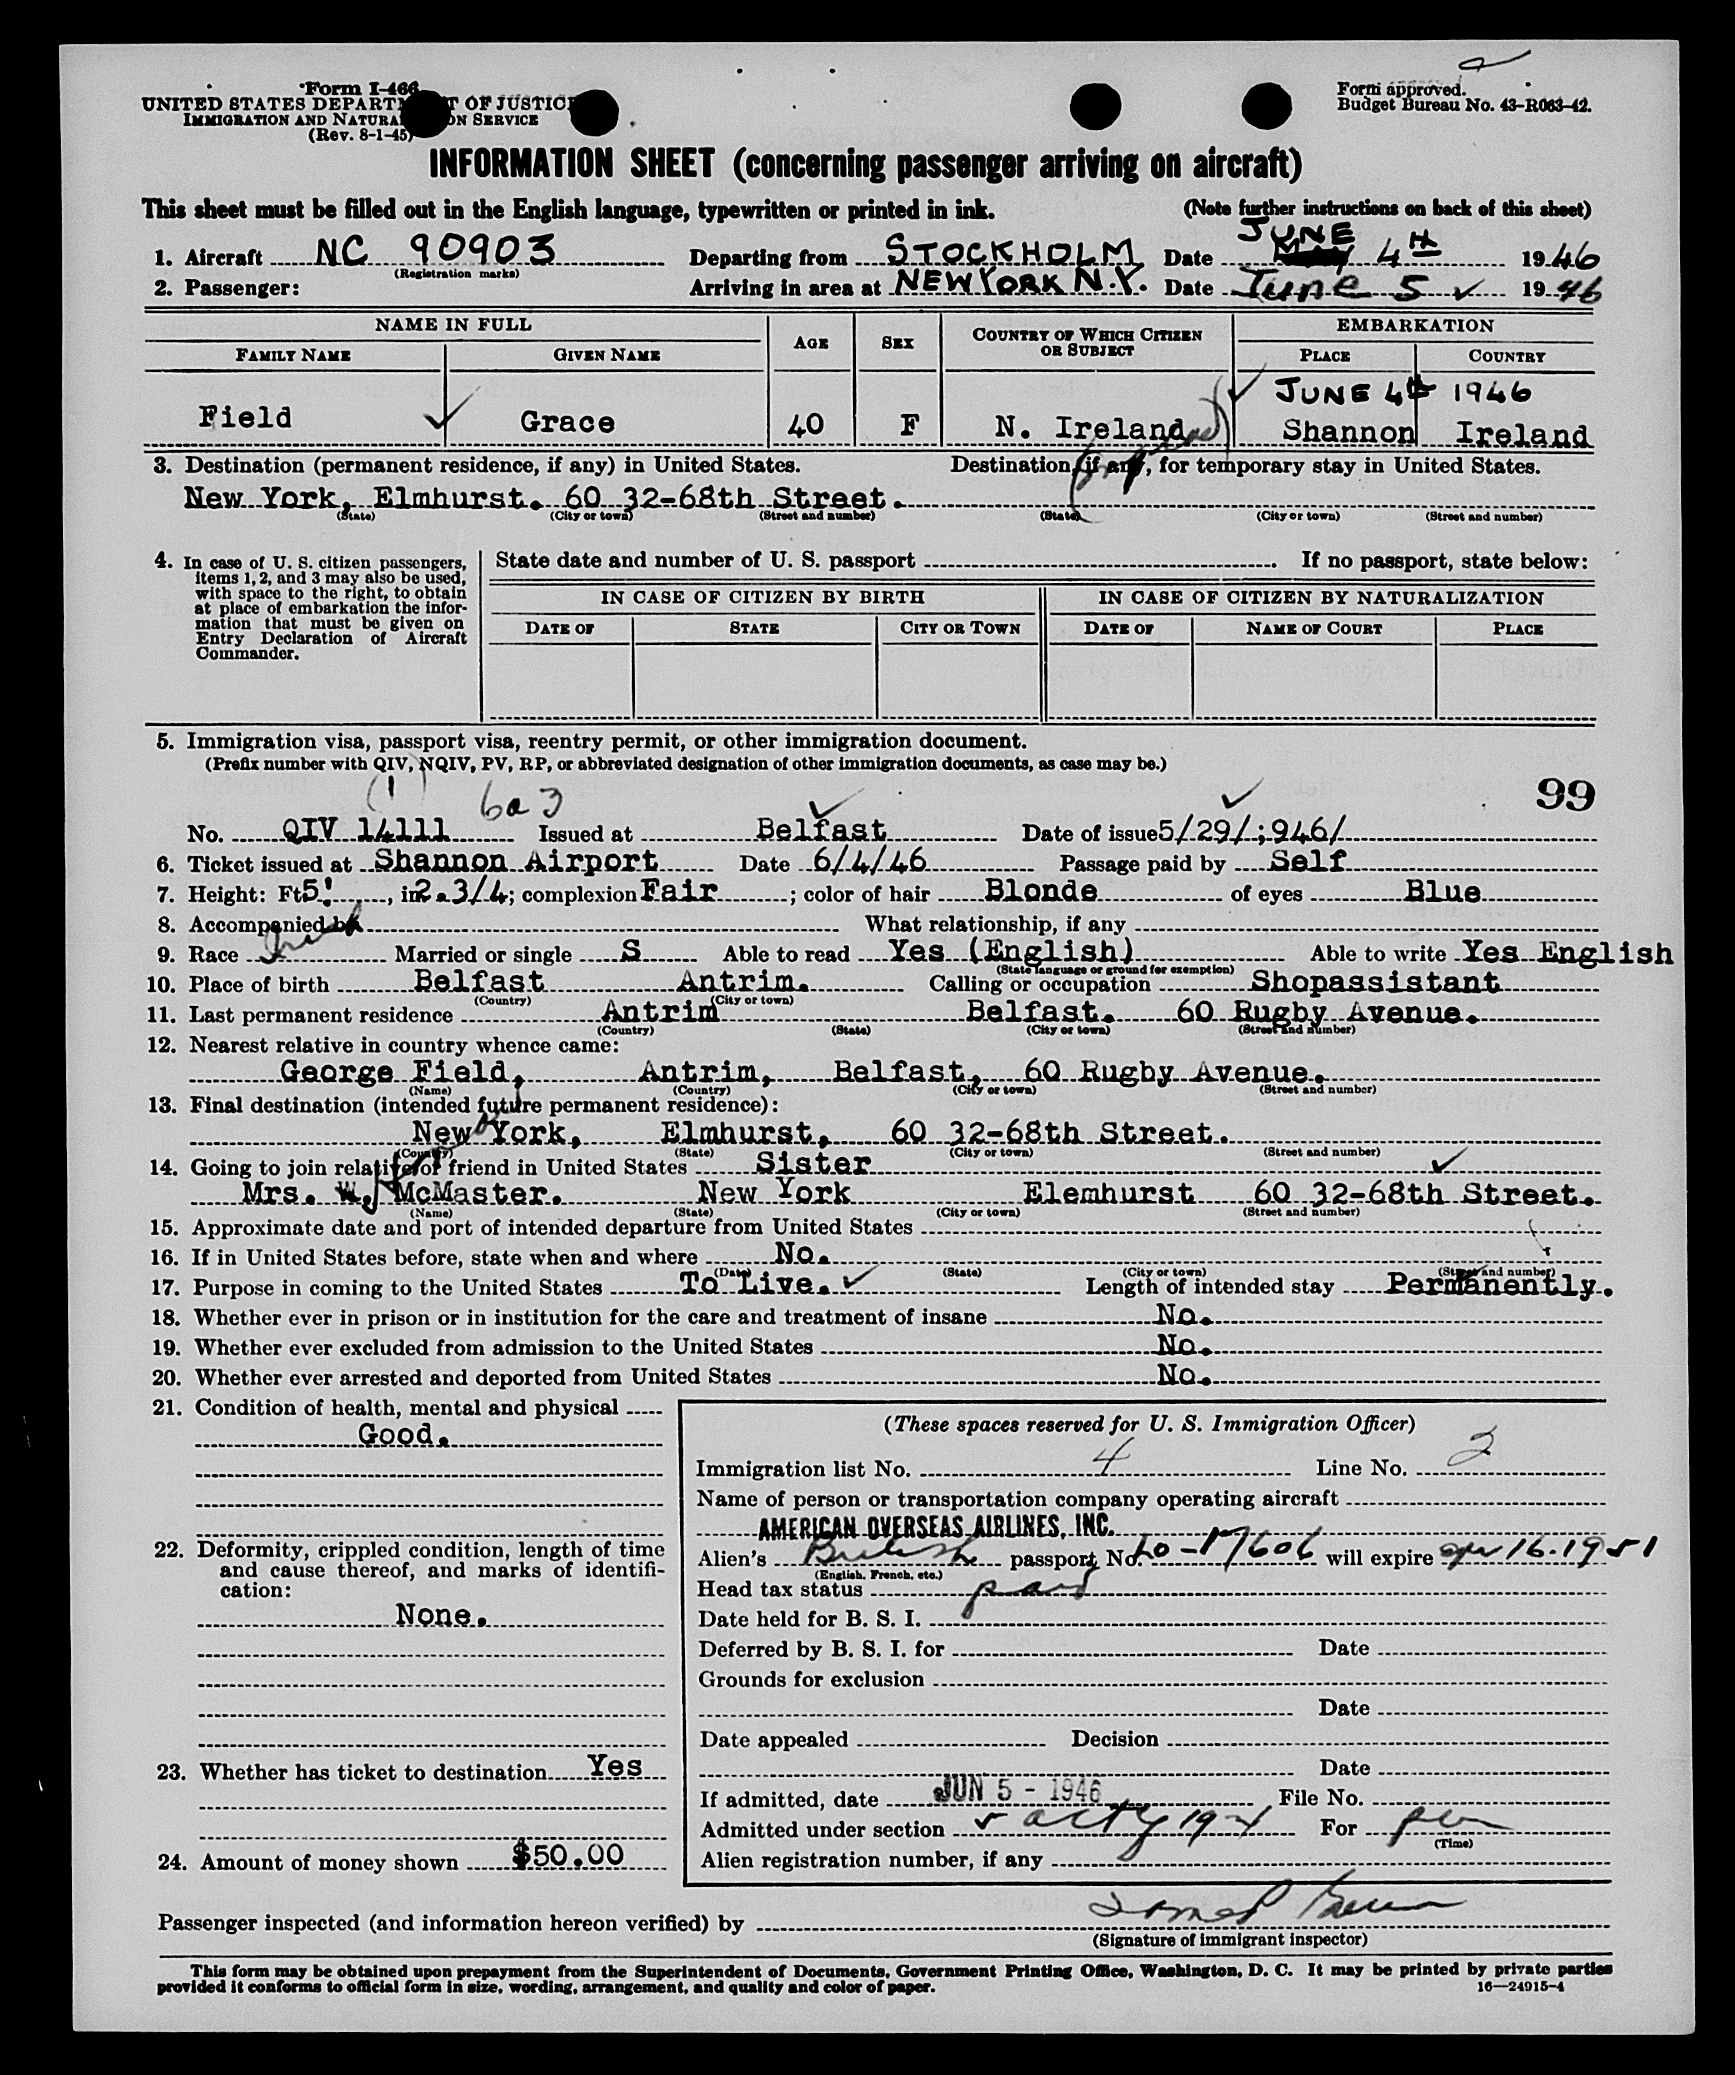 Form I-466
UNITED STATES DEPARTMENT OF JUSTICE
IMMIGRATION AND NATURALIZATION SERVICE
(Rev. 8-1-45)
Form approved.
Budget Bureau No. 43-R063-42.
INFORMATION SHEET (concerning passenger arriving on aircraft)
This sheet must be filled out in the English language, typewritten or printed in ink. (Note further instructions on back of this sheet)
JUNE
1. Aircraft NC 90903 Departing from STOCKHOLM Date 4th 1946
(Registration marks)
2. Passenger: Arriving in area at NEW YORK N.Y. Date June 5 ✓ 1946
NAME IN FULL AGE SEX COUNTRY OF WHICH CITIZEN OR SUBJECT EMBARKATION
FAMILY NAME GIVEN NAME PLACE COUNTRY
JUNE 4th 1946
Field ✓ Grace 40 F N. Ireland Shannon Ireland
3. Destination (permanent residence, if any) in United States. Destination, if any, for temporary stay in United States.
New York, Elmhurst. 60 32-68th Street.
(State) (City or town) (Street and number) (State) (City or town) (Street and number)
4. In case of U. S. citizen passengers, items 1, 2, and 3 may also be used, with space to the right, to obtain at place of embarkation the information that must be given on Entry Declaration of Aircraft Commander.
State date and number of U. S. passport . If no passport, state below:
IN CASE OF CITIZEN BY BIRTH IN CASE OF CITIZEN BY NATURALIZATION
DATE OF STATE CITY OR TOWN DATE OF NAME OF COURT PLACE
5. Immigration visa, passport visa, reentry permit, or other immigration document.
(Prefix number with QIV, NQIV, PV, RP, or abbreviated designation of other immigration documents, as case may be.)
(1) 6a3 99
No. QIV 14111 Issued at Belfast Date of issue 5/29/;946/
6. Ticket issued at Shannon Airport Date 6/4/46 Passage paid by Self
7. Height: Ft. 5!, in. 2.3/4; complexion Fair; color of hair Blonde of eyes Blue
8. Accompanied by What relationship, if any
9. Race Irish Married or single S Able to read Yes (English) Able to write Yes English
(State language or ground for exemption)
10. Place of birth Belfast Antrim. Calling or occupation Shopassistant
(Country) (City or town)
11. Last permanent residence Antrim Belfast. 60 Rugby Avenue.
(Country) (State) (City or town) (Street and number)
12. Nearest relative in country whence came:
George Field, Antrim, Belfast, 60 Rugby Avenue.
(Name) (Country) (City or town) (Street and number)
13. Final destination (intended future permanent residence):
New York, Elmhurst, 60 32-68th Street.
(Country) (State) (City or town) (Street and number)
14. Going to join relative or friend in United States Sister
Mrs. W. McMaster. New York Elemhurst 60 32-68th Street.
(Name) (State) (City or town) (Street and number)
15. Approximate date and port of intended departure from United States
16. If in United States before, state when and where No.
(Date) (State) (City or town) (Street and number)
17. Purpose in coming to the United States To Live. ✓ Length of intended stay Permanently.
18. Whether ever in prison or in institution for the care and treatment of insane No.
19. Whether ever excluded from admission to the United States No.
20. Whether ever arrested and deported from United States No.
21. Condition of health, mental and physical
Good.
22. Deformity, crippled condition, length of time and cause thereof, and marks of identification:
None.
23. Whether has ticket to destination Yes
24. Amount of money shown $50.00
(These spaces reserved for U. S. Immigration Officer)
Immigration list No. 4 Line No. 2
Name of person or transportation company operating aircraft
AMERICAN OVERSEAS AIRLINES, INC.
Alien's British passport No. LO-17606 will expire Apr 16-1951
(English, French, etc.)
Head tax status paid
Date held for B. S. I.
Deferred by B. S. I. for Date
Grounds for exclusion
Date
Date appealed Decision
Date
If admitted, date JUN 5 - 1946 File No.
Admitted under section 5 act of 1924 For per
(Time)
Alien registration number, if any
Passenger inspected (and information hereon verified) by
(Signature of immigrant inspector)
This form may be obtained upon prepayment from the Superintendent of Documents, Government Printing Office, Washington, D. C. It may be printed by private parties
provided it conforms to official form in size, wording, arrangement, and quality and color of paper. 16—24915-4